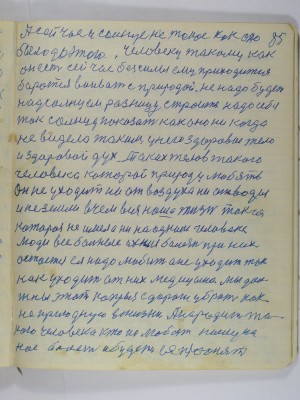 А сейчас и солнце не такое как оно 85
было до этого, человеку такому как
он есть сейчас без силы ему приходится
бороться воивать с природой, не надо будет
над солнцем разницу, строить надо себя
так солнцу показать какого ни когда
не видело таким у него здоровое тело
и здоровой дух. Таких телов такого
человека которой природу любить
Он не уходит ни от воздуха ни от воды
и не земли в чем вся наша жизнь такая
которая не имела ни на одним человеке
Люди все больные их ни болят при них
остается ея надо любить а не уходить
как уходит от них медицина. Мы дол-
жны этот каприз с дороги убрать как
не природную в жизни. А народит та-
кого человека кто полюбит
ное болеет и будет